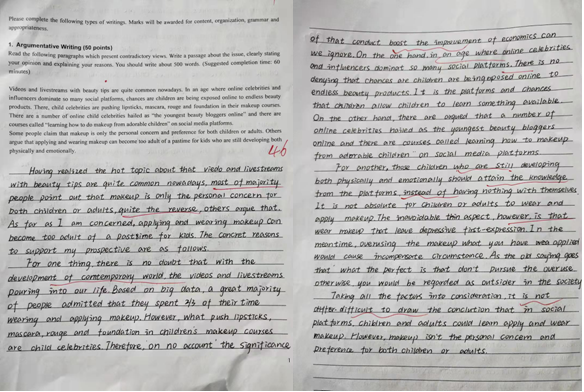 Please complete the following types of writings. Marks will be awarded for content, organization, grammar and
appropriateness.
1. Argumentative Writing (50 points)
Read the following paragraphs which present contradictory views. Write a passage about the issue, clearly stating
your opinion and explaining your reasons. You should write about 500 words. (Suggested completion time: 60
minutes)
Videos and livestreams with beauty tips are quite common nowadays. In an age where online celebrities and
influencers dominate so many social platforms, chances are children are being exposed online to endless beauty
products. There, child celebrities are pushing lipsticks, mascara, rouge and foundation in their makeup courses.
There are a number of online child celebrities hailed as "the youngest beauty bloggers online" and there are
courses called "learning how to do makeup from adorable children" on social media platforms.
Some people claim that makeup is only the personal concern and preference for both children or adults. Others
argue that applying and wearing makeup can become too adult of a pastime for kids who are still developing both
physically and emotionally.
46
Having realized the hot topic about that viedo and livestreams
with beauty tips are quite common nowadays, most of majority
people point out that makeup is only the personal concern for
both children or adults, quite the reverse, others argue that.
As far as I am concerned, applying and wearing makeup can
become too adult of a posttime for kids. The concret reasons
to support my prospective are as follows.
For one thing, there is no doubt that with the
development of contemporary world, the videos and livestreams
pouring into our life. Based on big data, a great majority
of people admitted that they spent 2/3 of their time
wearing and applying makeup. However, what push lipsticks,
mascara, rouge and foundation in children's makeup courses
are child celebrities. Therefore, on no account the significance
1
of that conduct boost the impovement of economics can
we ignore. On the one hand, in an age where online celebrities
and influencers dominat so many social platforms. There is no
denying that chances are children are being exposed online to
endless beauty products. It is the platforms and chances
that children allow children to learn something available.
On the other hand, there are argued that a number of
online celebrities hailed as the youngest beauty bloggers
online and there are courses called learning how to makeup
from adorable children on social media platforms.
For another, those children who are still developing
both physically and emotionally should attain the knowledge
from the platforms, instead of having nothing with themselves
It is not absolute for children or adults to wear and
apply makeup. The inavoidable thin aspect, however, is that
wear makeup that leave depressive expression. In the
meantime, overusing the makeup what you have applied
would cause circumstance. As the old saying goes
that what the perfect is that don't pursue the overuse
otherwise you would be regarded as outsider in the society
Taking all the factors into consideration, it is not
difficult to draw the conclution that in social
platforms, children and adults could learn apply and wear
makeup. However, makeup isn't the personal concern and
preference for both children or adults.